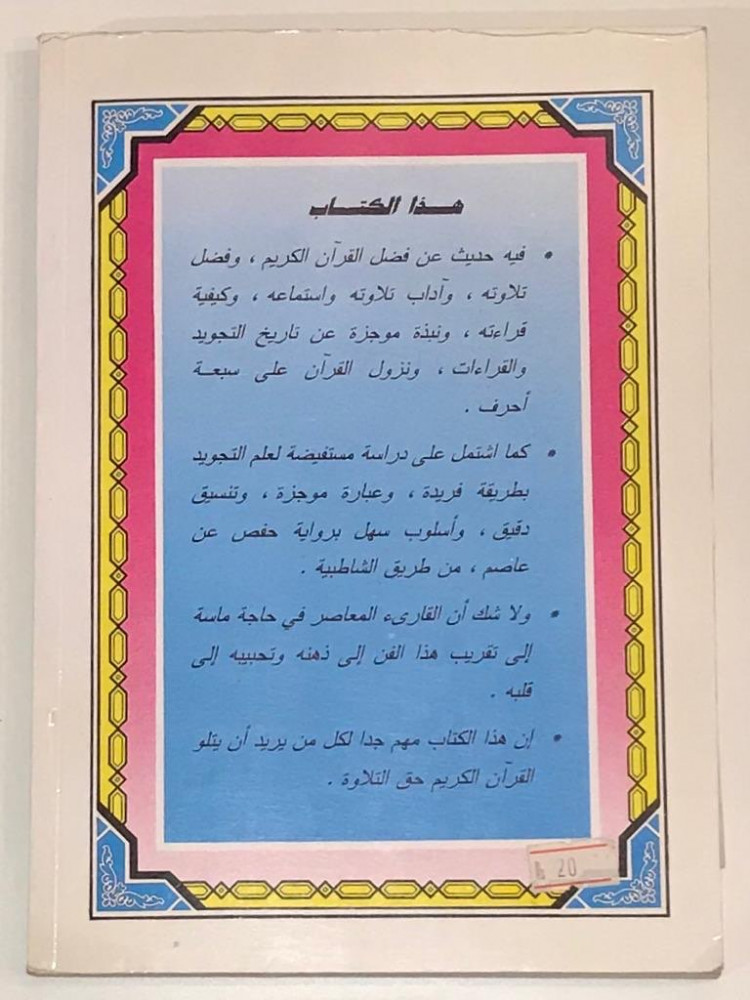 هذا الكتاب
• فيه حديث عن فضل القرآن الكريم ، وفضل
تلاوته ، وآداب تلاوته واستماعه ، وكيفية
قراءته ، ونبذة موجزة عن تاريخ التجويد
والقراءات ، ونزول القرآن على سبعة
أحرف .
• كما اشتمل على دراسة مستفيضة لعلم التجويد
بطريقة فريدة ، وعبارة موجزة ، وتنسيق
دقيق ، وأسلوب سهل برواية حفص عن
عاصم ، من طريق الشاطبية .
• ولا شك أن القارىء المعاصر في حاجة ماسة
إلى تقريب هذا الفن إلى ذهنه وتحبيبه إلى
قلبه .
• إن هذا الكتاب مهم جدا لكل من يريد أن يتلو
القرآن الكريم حق التلاوة .
20